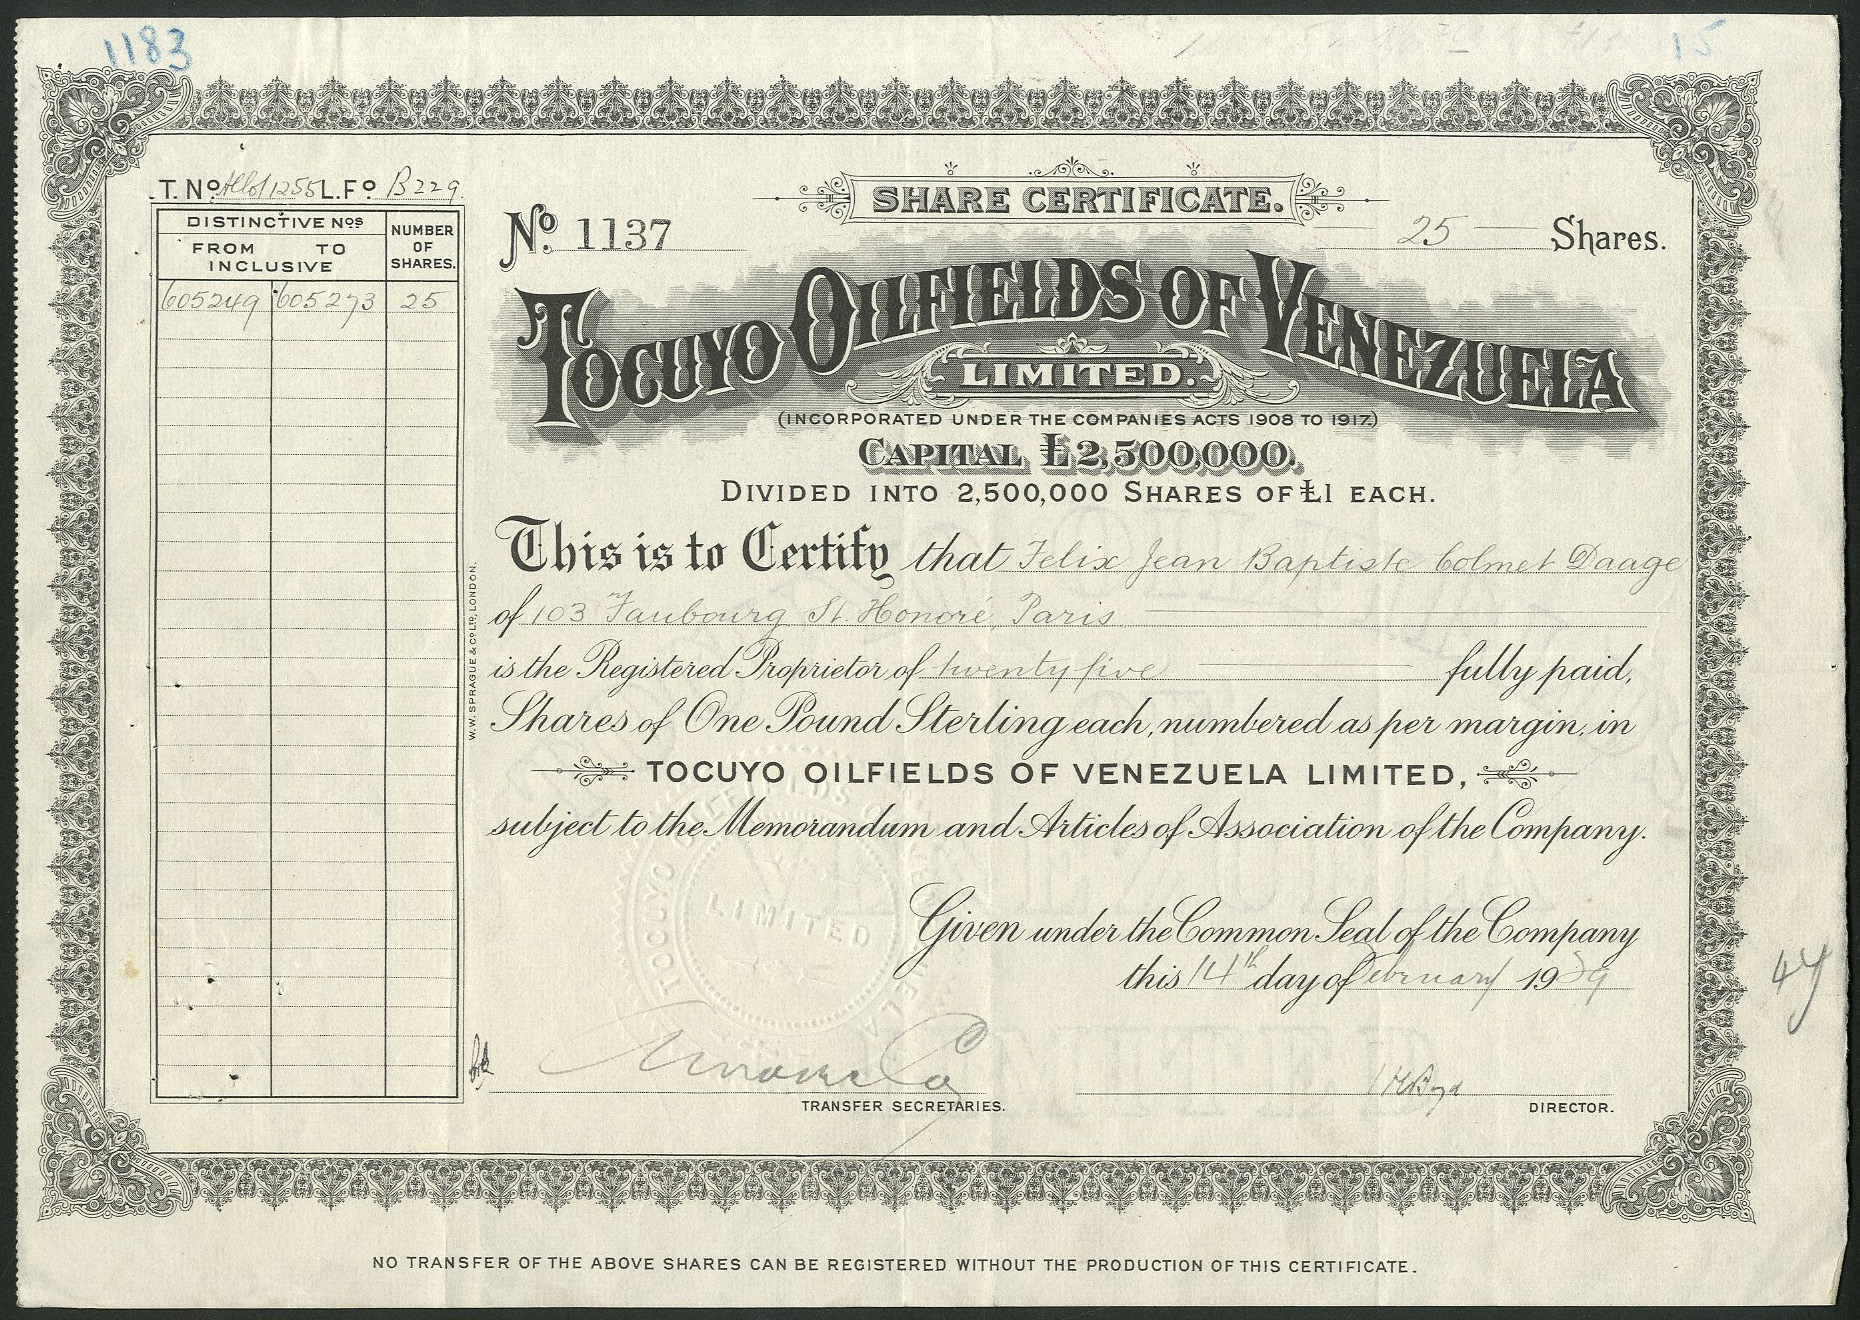 1183
15
T. No. Allot 1255 L. Fo. B229.
DISTINCTIVE Nos
FROM TO
INCLUSIVE
NUMBER
OF
SHARES.
605249 605273 25
SHARE CERTIFICATE.
No. 1137
25 Shares.
TOCUYO OILFIELDS OF VENEZUELA
LIMITED.
(INCORPORATED UNDER THE COMPANIES ACTS 1908 TO 1917.)
CAPITAL £2,500,000.
DIVIDED INTO 2,500,000 SHARES OF £1 EACH.
This is to Certify that Felix Jean Baptiste Colmet Daage
of 103 Faubourg St. Honoré, Paris
is the Registered Proprietor of twenty five fully paid,
Shares of One Pound Sterling each, numbered as per margin, in
TOCUYO OILFIELDS OF VENEZUELA LIMITED,
subject to the Memorandum and Articles of Association of the Company.
TOCUYO OILFIELDS OF VENEZUELA
LIMITED
Given under the Common Seal of the Company
this 14th day of February 1939
44
TRANSFER SECRETARIES.
DIRECTOR.
W.W. SPRAGUE & CO. LTD., LONDON.
NO TRANSFER OF THE ABOVE SHARES CAN BE REGISTERED WITHOUT THE PRODUCTION OF THIS CERTIFICATE.